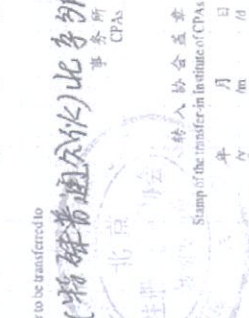 r to be transferred to
特殊普通合伙)北京分
事务所
CPAs
转入协会盖章
Stamp of the transfer-in Institute of CPAs
年 月 日
/y /m /d
北京